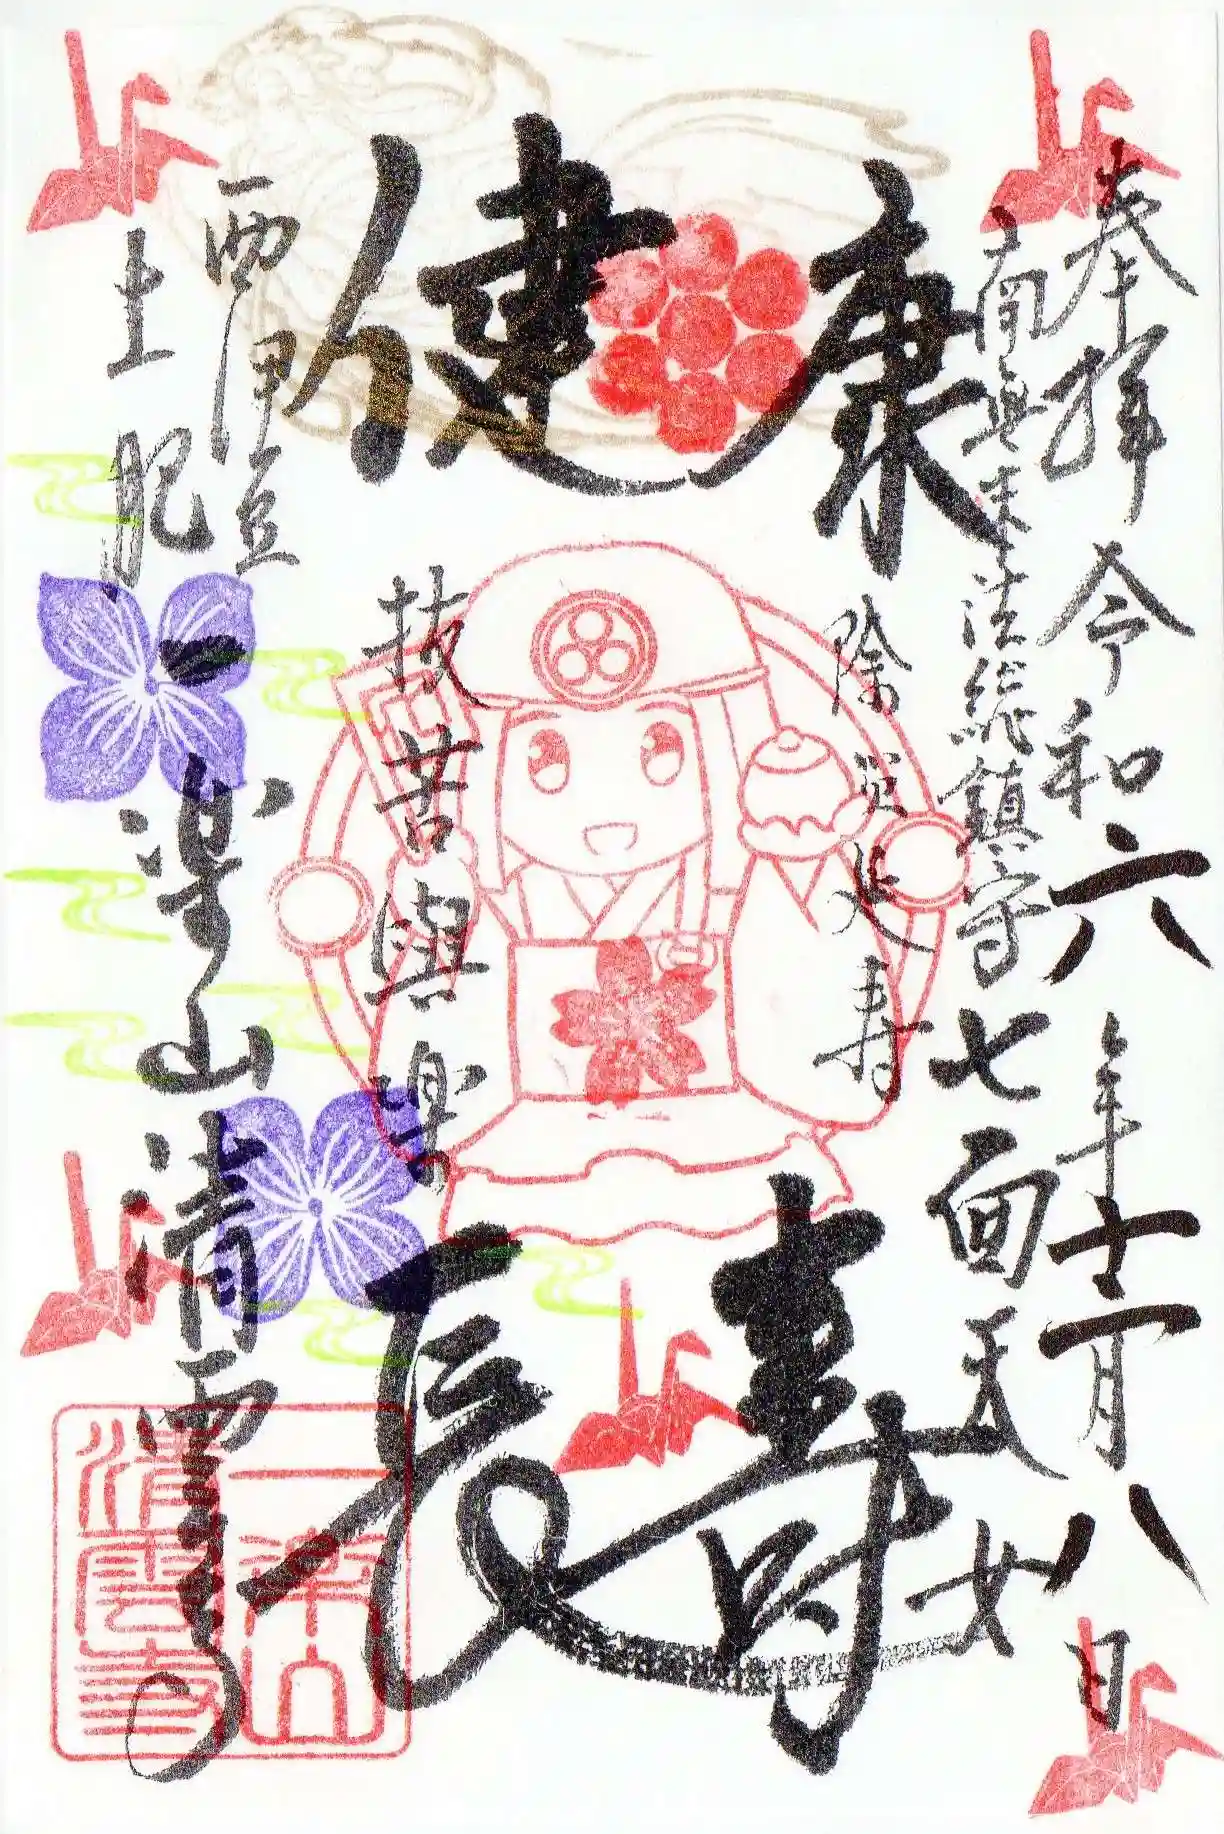 奉拝 令和六年十一月八日
南無末法総鎮守七面天女
健康
除災延寿
抜苦與楽
長壽
西伊豆
土肥
一楽山清雲寺
一樂山
清雲寺